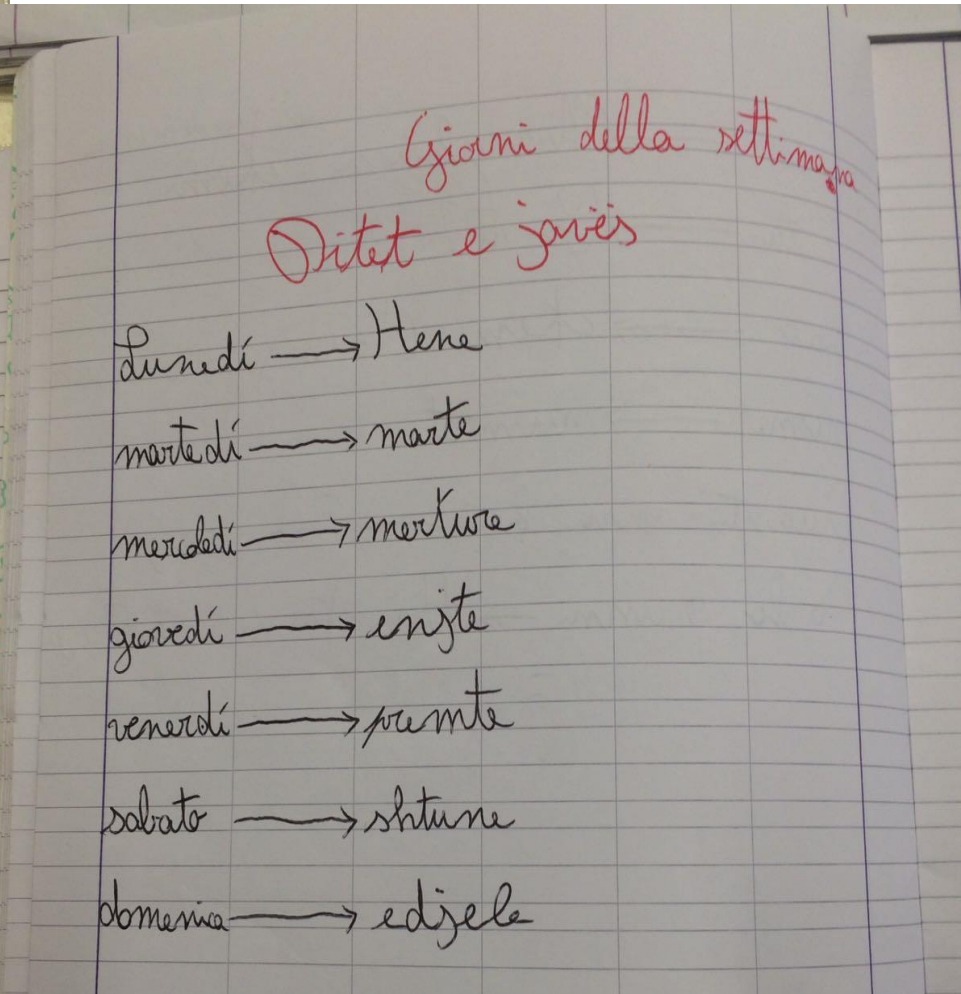 Giorni della settimana
Ditet e javës
Lunedí → Hene
martedí → marte
mercoledí → merkure
giovedí → enjte
venerdí → premte
sabato → shtune
domenica → edjele